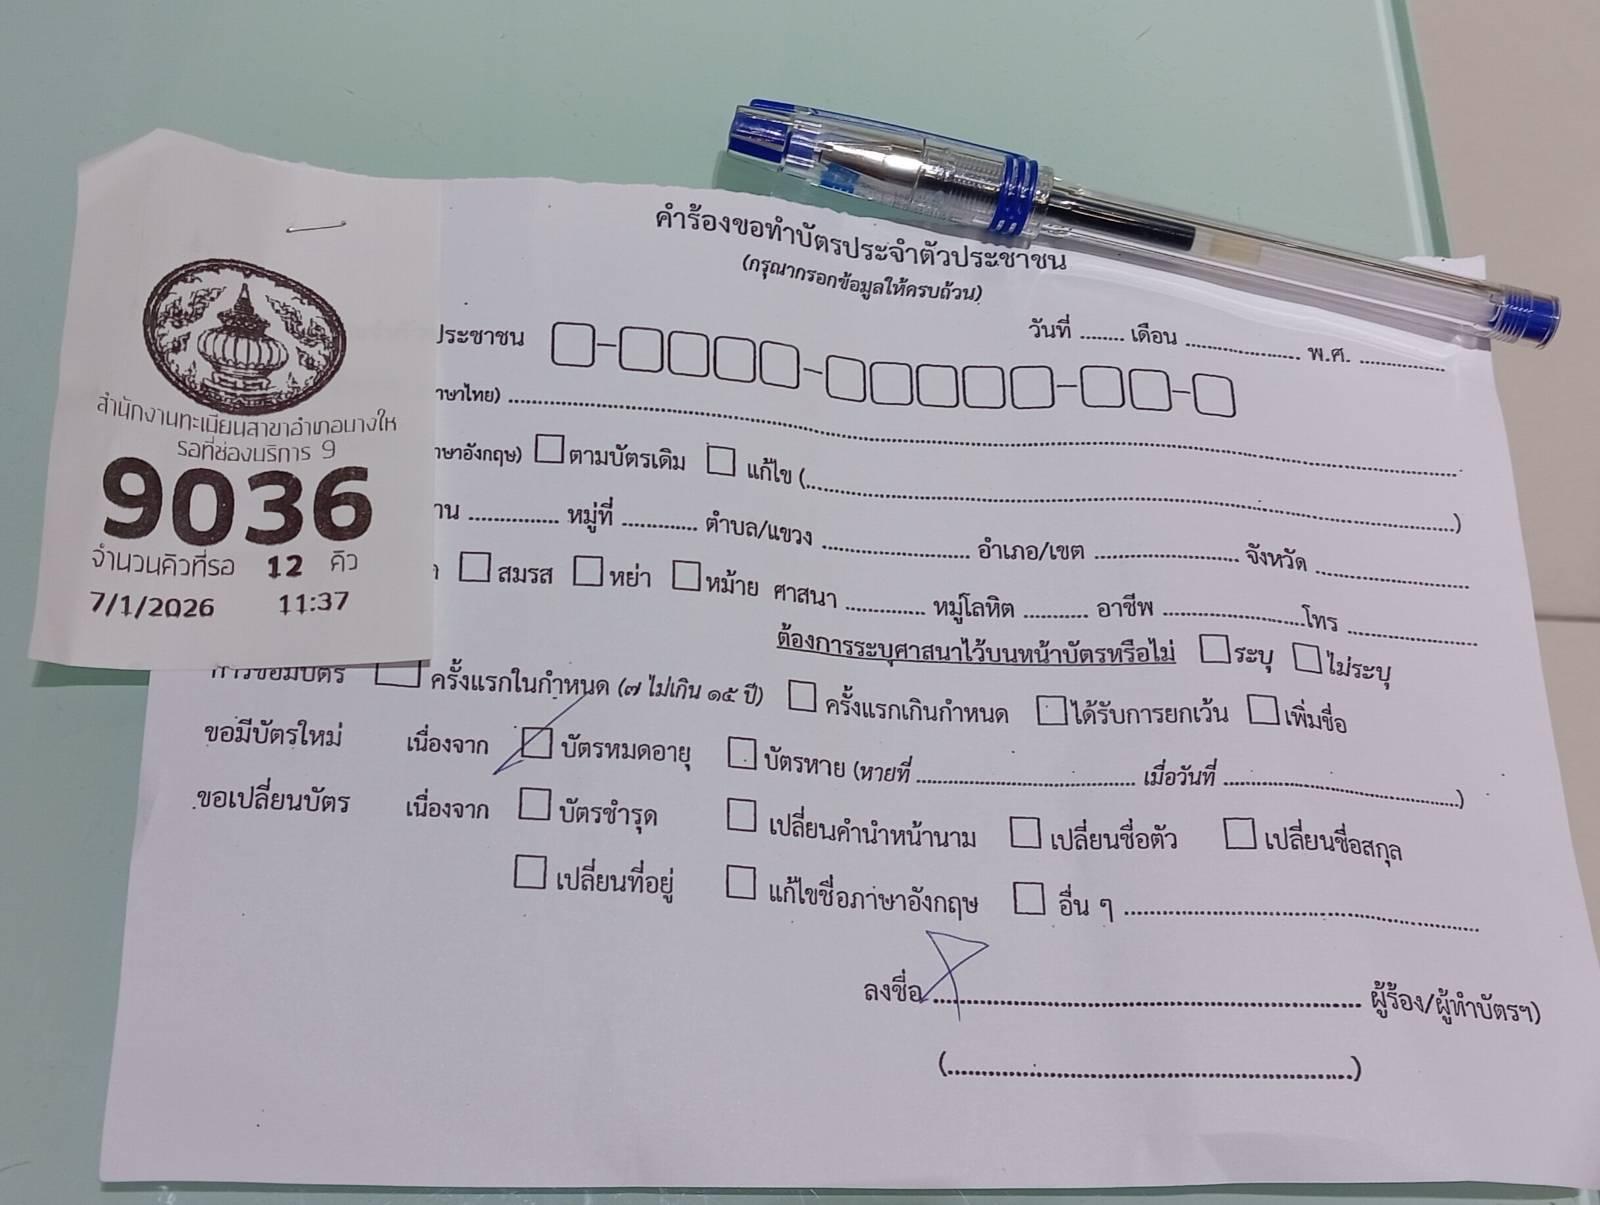 สำนักงานทะเบียนสาขาอำเภอบางให
รอที่ช่องบริการ 9
9036
จำนวนคิวที่รอ 12 คิว
7/1/2026 11:37
คำร้องขอทำบัตรประจำตัวประชาชน
(กรุณากรอกข้อมูลให้ครบถ้วน)
วันที่ ........ เดือน ..................... พ.ศ. ................
ประชาชน
ภาษาไทย) ................................................................
ภาษาอังกฤษ) ☐ ตามบัตรเดิม ☐ แก้ไข (................................................................)
............... หมู่ที่ ............. ตำบล/แขวง .......................... อำเภอ/เขต .......................... จังหวัด ............................
☐ สมรส ☐ หย่า ☐ หม้าย ศาสนา .............. หมู่โลหิต ........... อาชีพ ........................โทร ........................
ต้องการระบุศาสนาไว้บนหน้าบัตรหรือไม่ ☐ ระบุ ☐ ไม่ระบุ
การขอมีบัตร ☐ ครั้งแรกในกำหนด (๗ ไม่เกิน ๑๕ ปี) ☐ ครั้งแรกเกินกำหนด ☐ ได้รับการยกเว้น ☐ เพิ่มชื่อ
ขอมีบัตรใหม่ เนื่องจาก ☐ บัตรหมดอายุ ☐ บัตรหาย (หายที่ ........................................ เมื่อวันที่ ............................................)
ขอเปลี่ยนบัตร เนื่องจาก ☐ บัตรชำรุด ☐ เปลี่ยนคำนำหน้านาม ☐ เปลี่ยนชื่อตัว ☐ เปลี่ยนชื่อสกุล
☐ เปลี่ยนที่อยู่ ☐ แก้ไขชื่อภาษาอังกฤษ ☐ อื่น ๆ ................................................................
ลงชื่อ ................................................................ ผู้ร้อง/ผู้ทำบัตรฯ)
(................................................................)